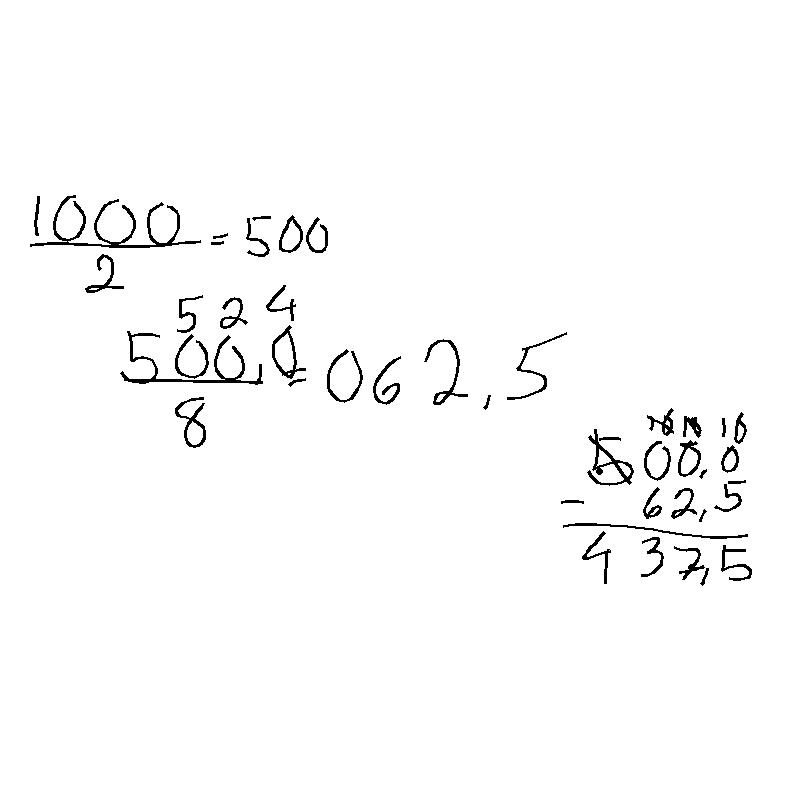 1000
— = 500
2
5 2 4
500,0
— = 062,5
8
10 10 10
500,0
- 62,5
437,5